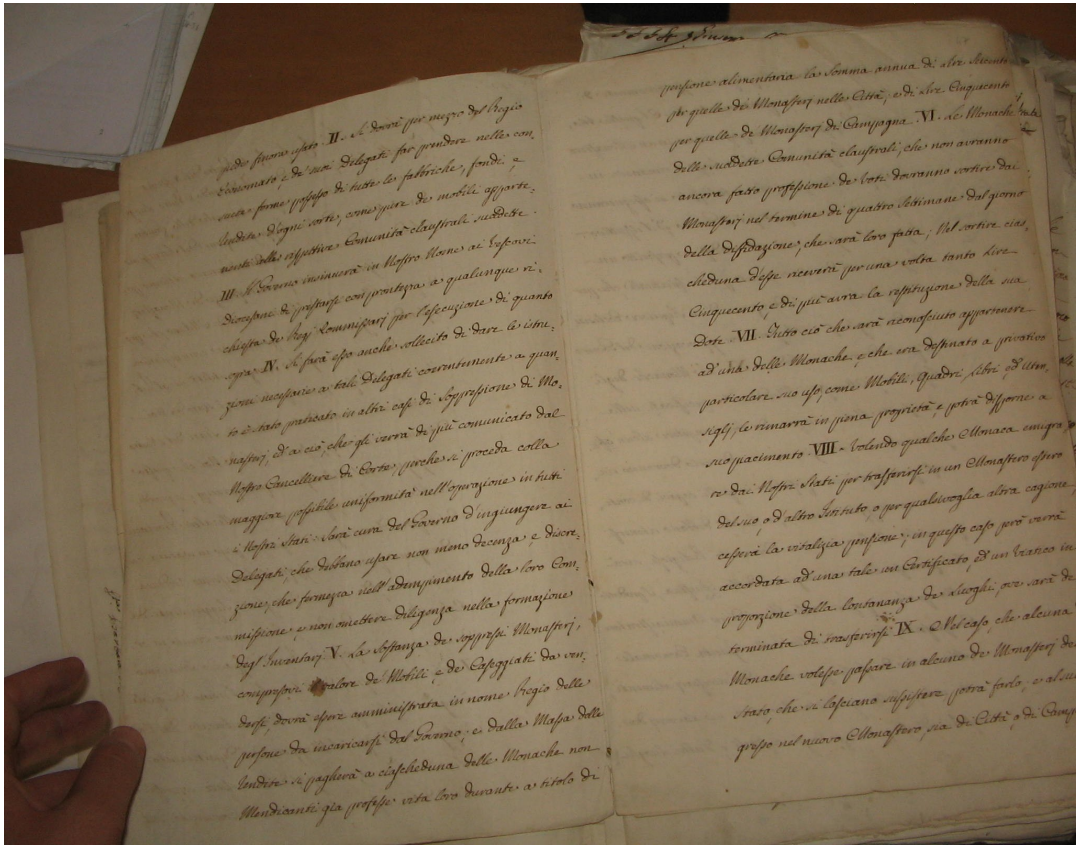 piede finora usato. II. Si dovrà per mezzo del Regio
Economato, e de suoi Delegati far prendere nelle con
suete forme possesso di tutte le fabbriche, fondi, e
rendite d'ogni sorte, come pure di mobili apparte-
nenti alle rispettive Comunità claustrali suddette.
III. Il Governo insinuerà in Nostro Nome ai Vescovi
Diocesani di prestarsi con prontezza a qualunque ri-
chiesta de Regj Commissarj per l'esecuzione di quanto
sopra IV. Si farà esso anche sollecito di dare le istru-
zioni necessarie a tali Delegati coerentemente a quan-
to è stato praticato in altri casi di soppressione di Mo-
nasterj, ed a ciò, che gli verrà di più comunicato dal
Nostro Cancelliere di Corte, perche si proceda colla
maggiore possibile uniformità nell'operazione in tutti
i Nostri Stati. Sarà cura del Governo d'ingiungere ai
Delegati, che debbano usare non meno decenza, e discre-
zione, che fermezza nell'adempimento della loro Com-
missione e non omettere diligenza nella formazione
degl'Inventarj V. La Sostanza de soppressi Monasterj,
compresovi il valore de Mobili, e de Caseggiati da ven-
dersi, dovrà essere amministrata in nome Regio delle
persone da incaricarsi dal Governo, e dalla Massa delle
rendite si pagherà a ciascheduna delle Monache non
Mendicanti già professe vita loro durante a titolo di
pensione alimentaria la somma annua di Lire Seicento
per quelle de Monasterj nelle Città, e di Lire Cinquecento
per quelle de Monasterj di Campagna VI. Le Monache
delle suddette Comunità claustrali, che non avranno
ancora fatto professione de Voti dovranno sortire dai
Monasterj nel termine di quattro Settimane dal giorno
della diffidazione, che sarà loro fatta; Nel sortire cias-
cheduna d'esse riceverà per una volta tanto Lire
Cinquecento, e di più avrà la restituzione della sua
Dote VII. Tutto ciò che sarà riconosciuto appartenere
ad una delle Monache, e che era destinato a privativo
particolare suo uso, come Mobili, Quadri, Libri, ed Uten-
siglj, le rimarrà in piena proprietà e potrà disporne a
suo piacimento VIII. Volendo qualche Monaca emigra
re dai Nostri Stati per trasferirsi in un Monastero estero
del suo, o d'altro Istituto, o per qualsivoglia altra cagione,
cesserà la vitalizia pensione; in questo caso però verrà
accordata ad una tale un Certificato, ed un Viatico in
proporzione della lontananza de Luoghi, ove sarà de
terminata di trasferirsi IX. Nel caso, che alcuna
Monache volesse passare in alcuno de Monasterj de
Stato, che si lasciano sussistere potrà farlo, e al su
gresso nel nuovo Monastero, sia di Città, o di Camp